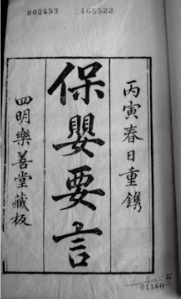 002453
165522
丙寅春日重鐫
保嬰要言
四明樂善堂藏板
01180